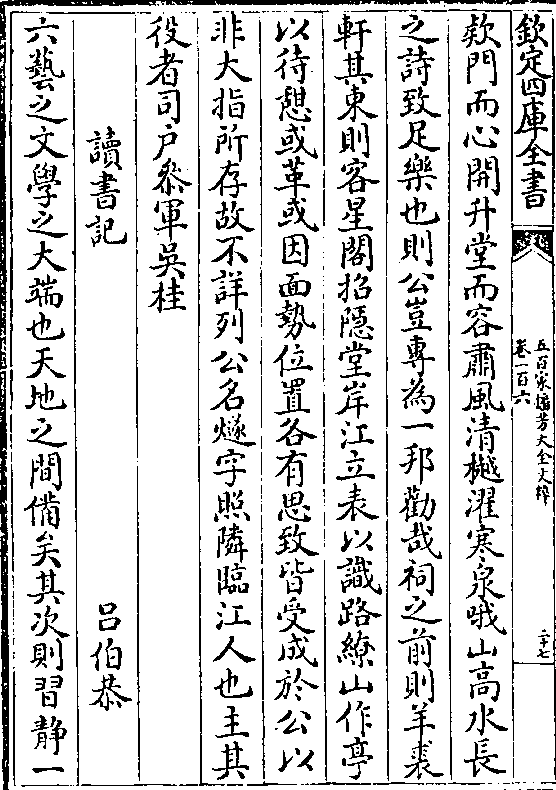 欽定四庫全書
五百家播芳大全文粹
卷一百六
二十七
欵門而心開升堂而容肅風清樾濯寒泉哦山高水長
之詩致足樂也則公豈專為一邦勸哉祠之前則羊裘
軒其東則客星閣招隱堂岸江立表以識路繚山作亭
以待憇或革或因面勢位置各有思致皆受成於公以
非大指所存故不詳列公名燧字照隣臨江人也主其
役者司户叅軍吳桂
讀書記
吕伯恭
六藝之文學之大端也天地之間備矣其次則習静一